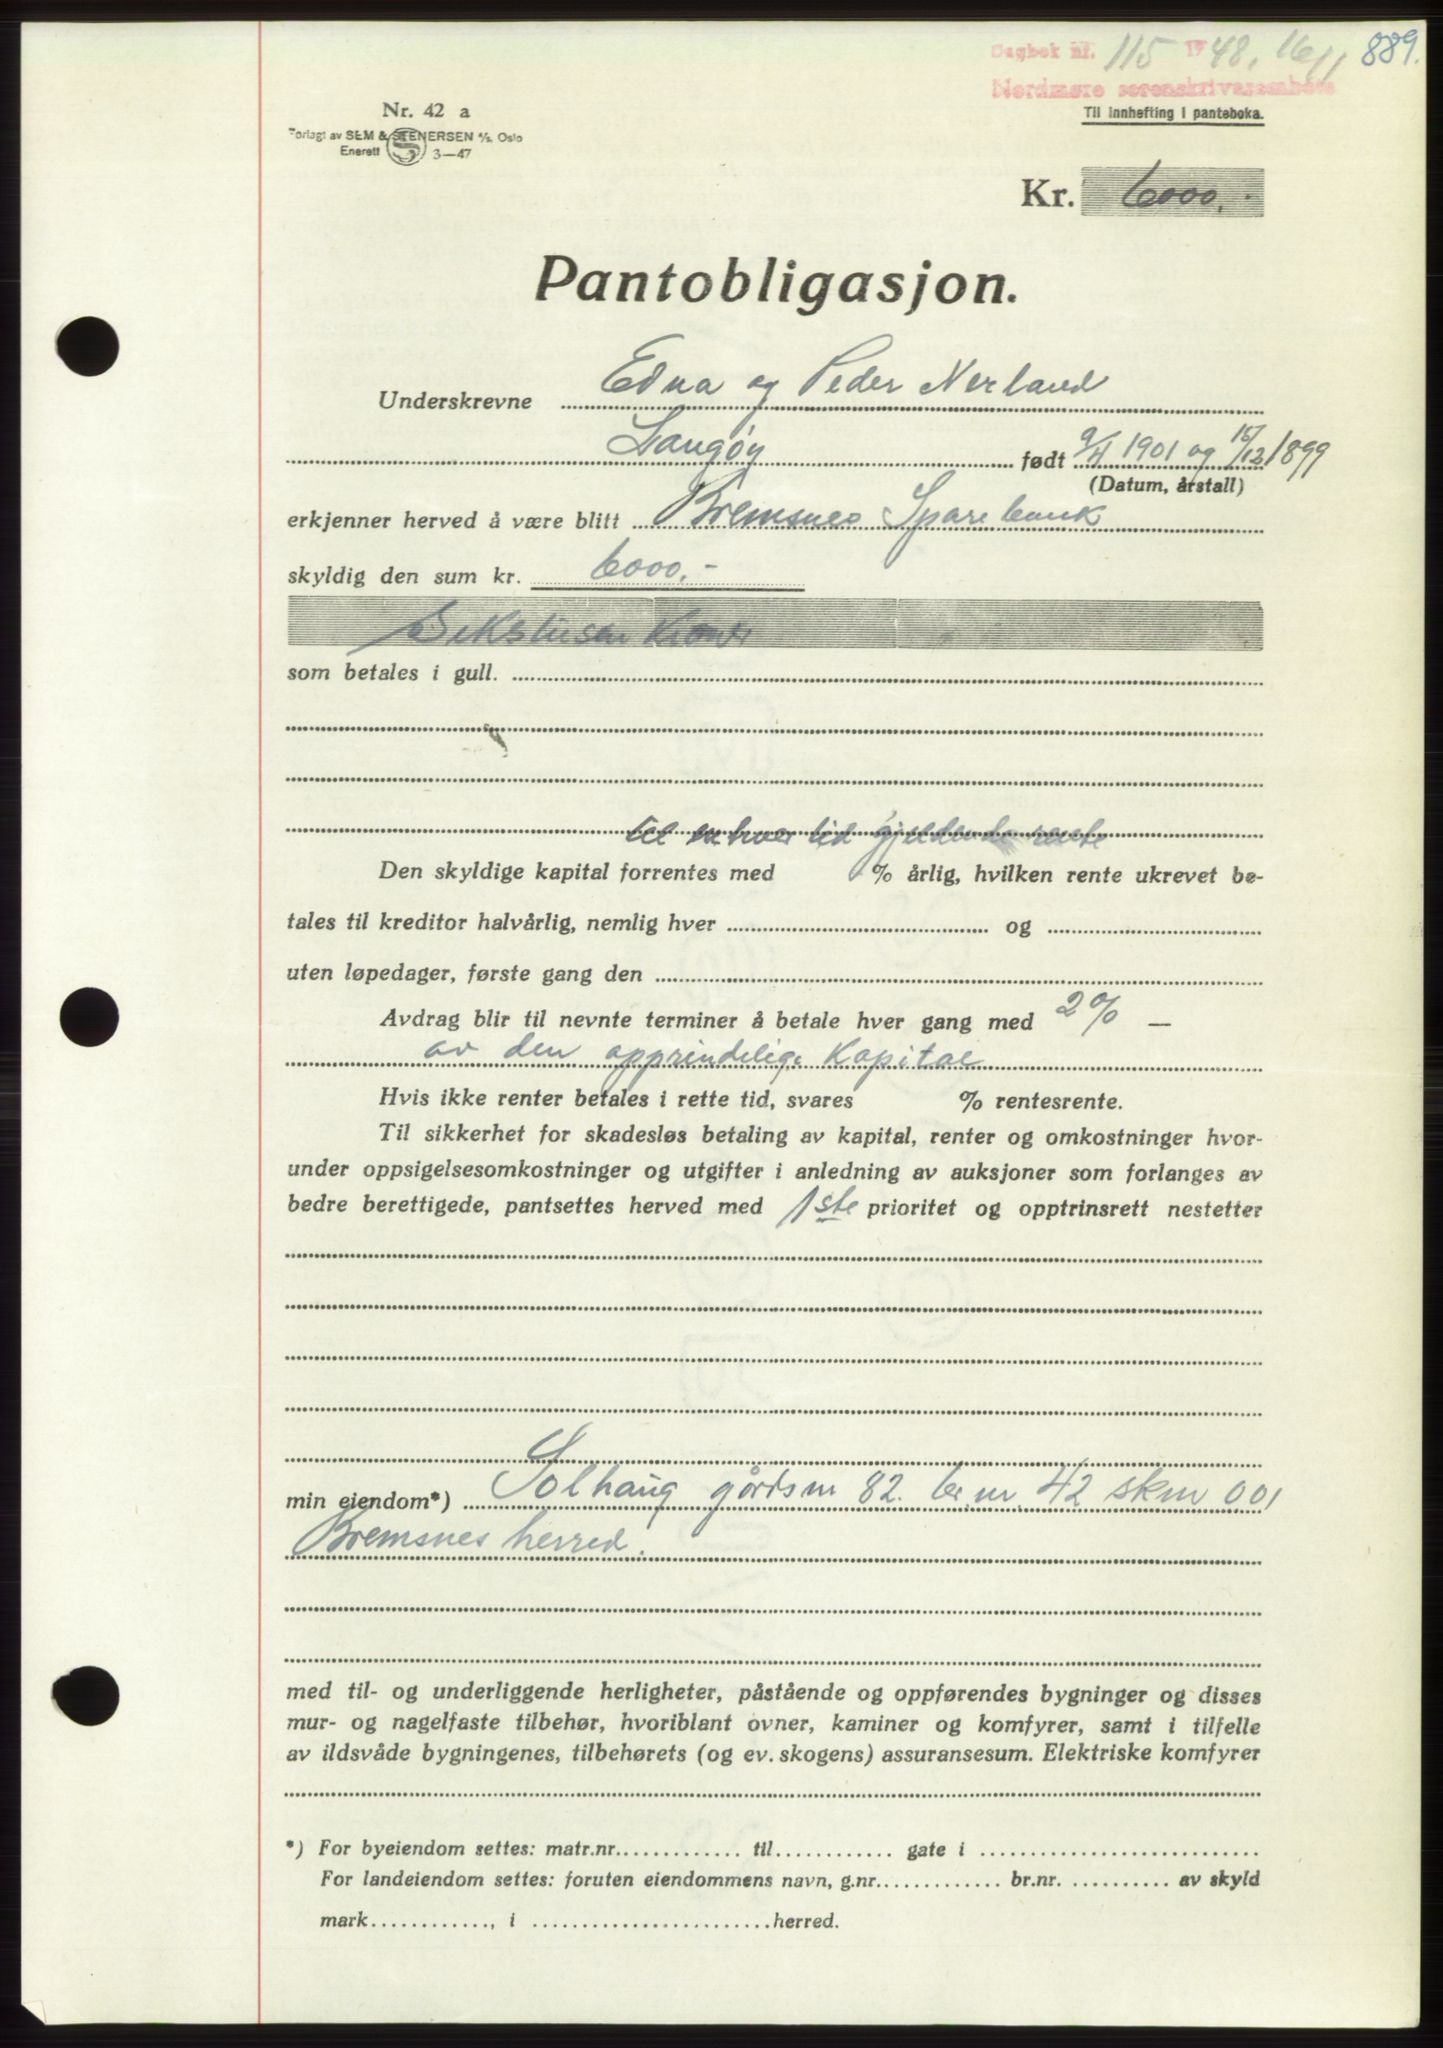 Dagbok nr. 115 1948, 16/1 889.
Nordmøre sorenskriverembete
Nr. 42 a
Til innhefting i panteboka.
Forlagt av SEM & STENERSEN A/S, Oslo
Enerett 3—47
Kr. 6000.-
Pantobligasjon.
Underskrevne Edna og Peder Nerland
Langøy født 9/4 1901 og 15/12 1899
(Datum, årstall)
erkjenner herved å være blitt Bremsnes Sparebank
skyldig den sum kr. 6000.-
Sekstusen Kroner
som betales i gull.
til enhver tid gjeldende rente
Den skyldige kapital forrentes med % årlig, hvilken rente ukrevet be-
tales til kreditor halvårlig, nemlig hver og
uten løpedager, første gang den
Avdrag blir til nevnte terminer å betale hver gang med 2% —
av den opprindelige Kapital
Hvis ikke renter betales i rette tid, svares % rentesrente.
Til sikkerhet for skadesløs betaling av kapital, renter og omkostninger hvor-
under oppsigelsesomkostninger og utgifter i anledning av auksjoner som forlanges av
bedre berettigede, pantsettes herved med 1ste prioritet og opptrinsrett nestetter
min eiendom*) Solhaug gårdsnr 82. br.nr. 42 skm 001
Bremsnes herred.
med til- og underliggende herligheter, påstående og oppførendes bygninger og disses
mur- og nagelfaste tilbehør, hvoriblant ovner, kaminer og komfyrer, samt i tilfelle
av ildsvåde bygningenes, tilbehørets (og ev. skogens) assuransesum. Elektriske komfyrer
*) For byeiendom settes: matr.nr. til gate i
For landeiendom settes: foruten eiendommens navn, g.nr. br.nr. av skyld
mark , i herred.